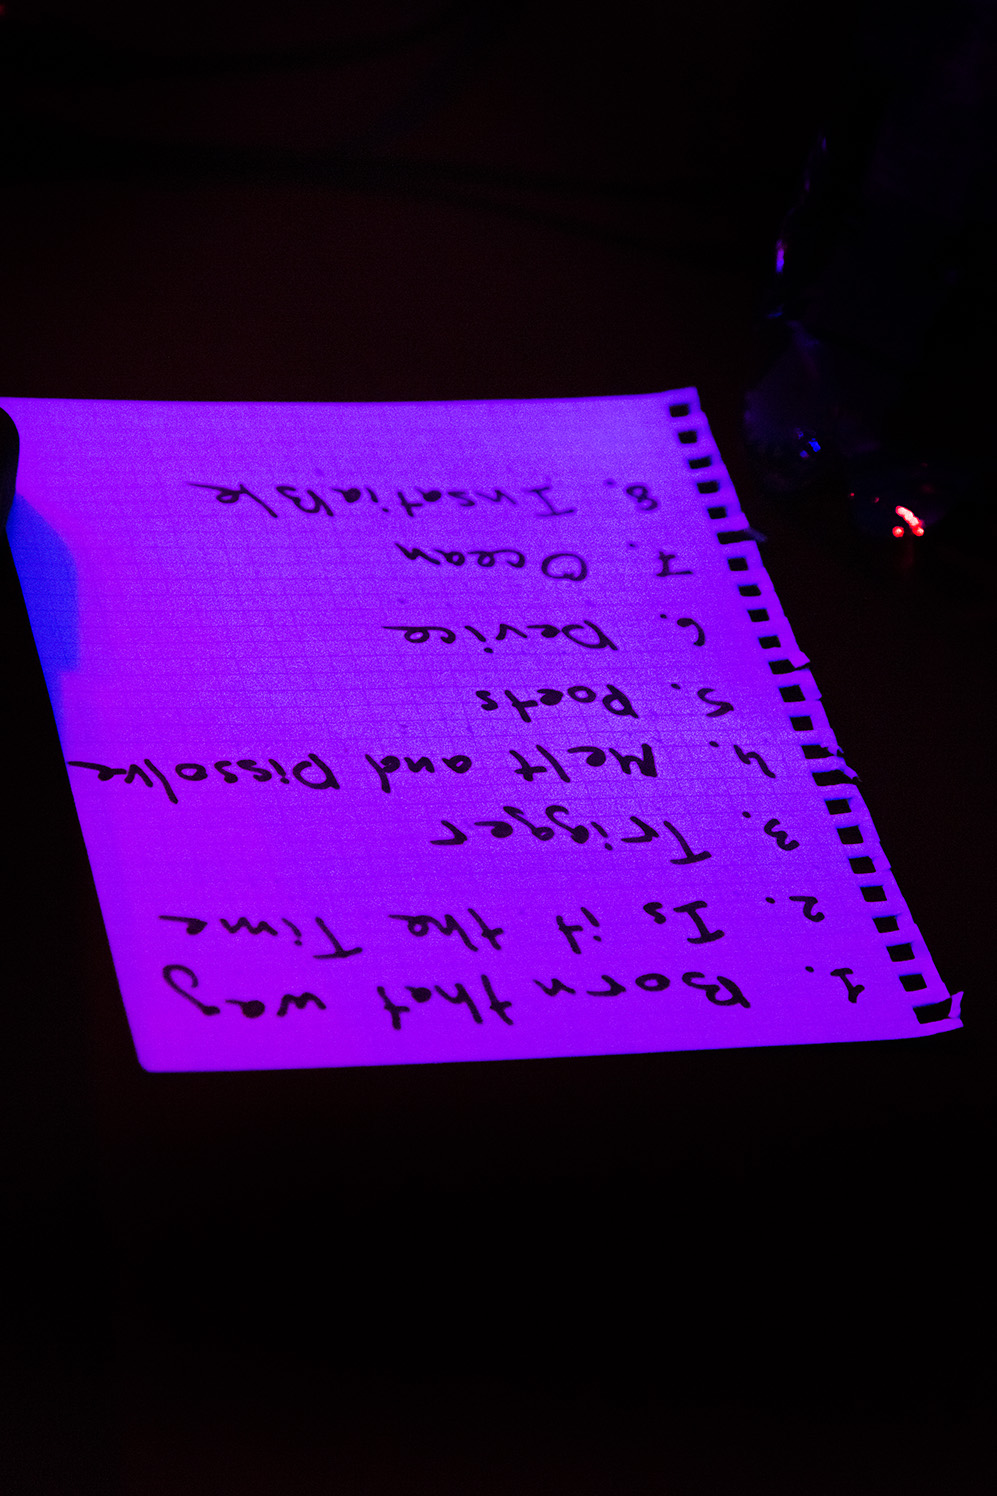 1. Born that way
2. Is it the Time
3. Trigger
4. Melt and Dissolve
5. Poets
6. Device
7. Ocean
8. InsatiaBle